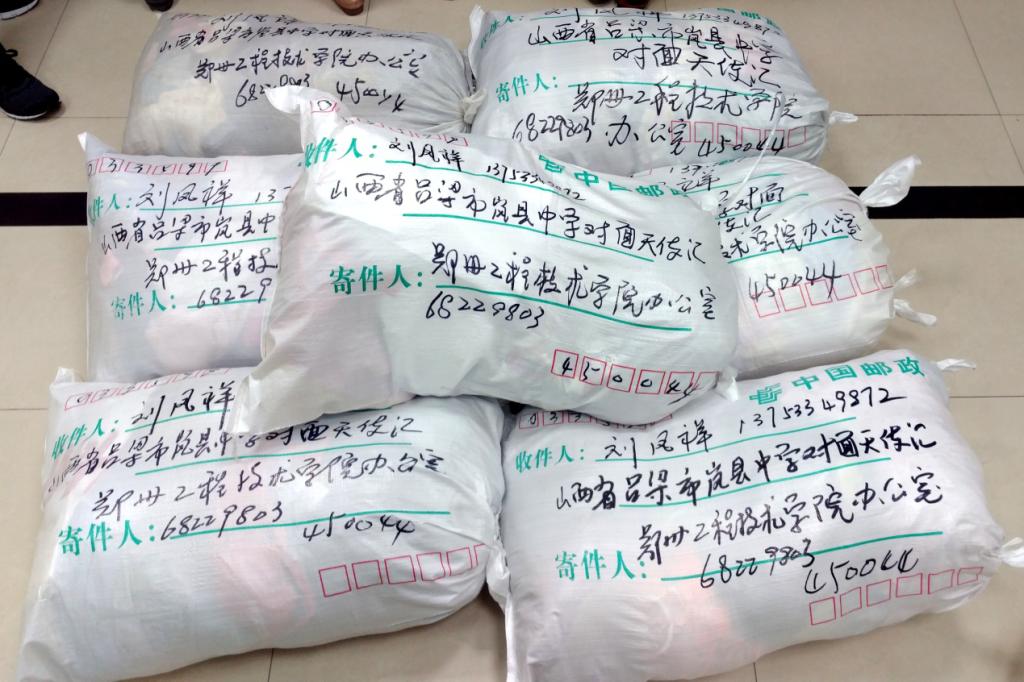 刘凤祥
山西省吕梁市岚县中学对面天
郑州工程技术学院办公室
450044
13753349872
山西省吕梁市岚县中学
对面天使汇
寄件人:郑州工程技术学院
68229803 办公室 450044
033099
件人:刘凤祥 13
山西省吕梁市岚县中
郑州工程技
寄件人:68229
收件人:刘凤祥
中国邮政
山西省吕梁市岚县中学对面天使汇
寄件人:郑州工程技术学院办公室
68229803
450044
学对面
学院办公室
450044
收件人:刘凤祥
山西省吕梁市岚县中学对面天使汇
郑州工程技术学院办公室
寄件人:68229803
450044
中国邮政
收件人:刘凤祥 13753349872
山西省吕梁市岚县中学对面天使汇
郑州工程技术学院办公室
寄件人:68229803
450044